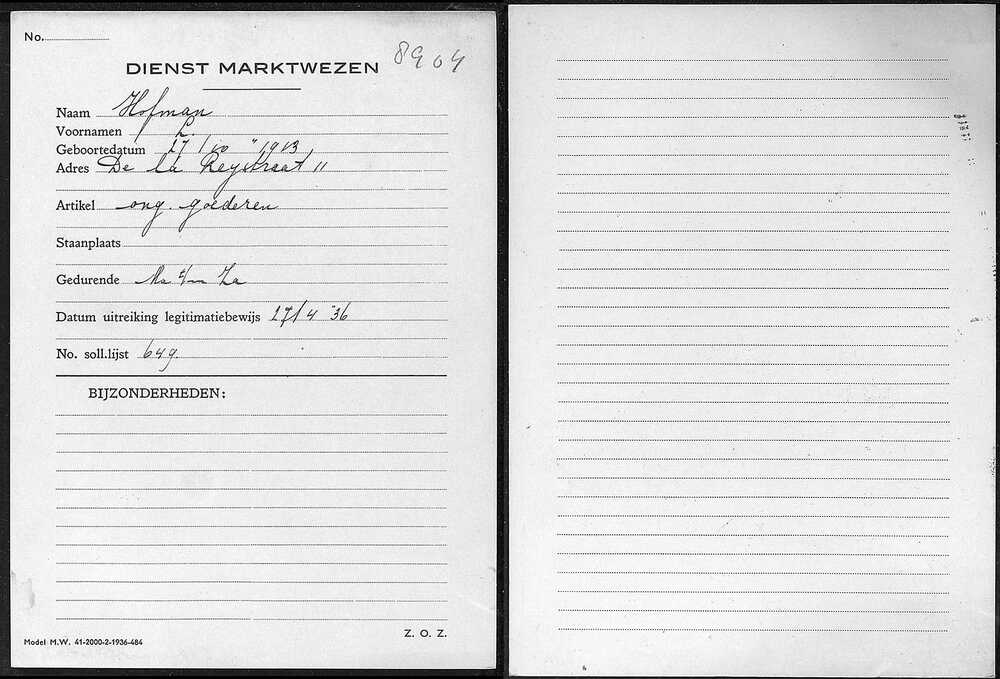 No.
8904
DIENST MARKTWEZEN
Naam Hofman
Voornamen L.
Geboortedatum 17/10 "1913
Adres De la Reystraat 11
Artikel ong. goederen
Staanplaats
Gedurende Ma t/m Za
Datum uitreiking legitimatiebewijs 17/4 '36
No. soll.lijst 649.
BIJZONDERHEDEN:
Model M.W. 41-2000-2-1936-484
Z. O. Z.